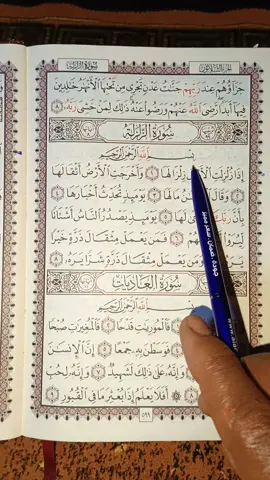 سُورَةُ الزَّلْزَلَةِ
جَزَآؤُهُمْ عِندَ رَبِّهِمْ جَنَّٰتُ عَدْنٍ تَجْرِى مِن تَحْتِهَا ٱلْأَنْهَٰرُ خَٰلِدِينَ
فِيهَآ أَبَدًا رَّضِىَ ٱللَّهُ عَنْهُمْ وَرَضُوا۟ عَنْهُ ذَٰلِكَ لِمَنْ خَشِىَ رَبَّهُۥ ٨
سُورَةُ الزَّلْزَلَةِ
بِسْمِ ٱللَّهِ ٱلرَّحْمَٰنِ ٱلرَّحِيمِ
إِذَا زُلْزِلَتِ زِلْزَالَهَا ١ وَأَخْرَجَتِ ٱلْأَرْضُ أَثْقَالَهَا
٢ وَقَالَ مَا لَهَا ٣ يَوْمَئِذٍ تُحَدِّثُ أَخْبَارَهَا ٤
بِأَنَّ رَبَّكَ لَهَا ٥ يَوْمَئِذٍ يَصْدُرُ ٱلنَّاسُ أَشْتَاتًا
لِّيُرَوْا۟ ٦ فَمَن يَعْمَلْ مِثْقَالَ ذَرَّةٍ خَيْرًا
يَعْمَلْ مِثْقَالَ ذَرَّةٍ شَرًّا يَرَهُۥ ٨
سُورَةُ العَادِيَاتِ
بِسْمِ ٱللَّهِ ٱلرَّحْمَٰنِ ٱلرَّحِيمِ
فَٱلْمُورِيَٰتِ قَدْحًا ٢ فَٱلْمُغِيرَٰتِ صُبْحًا
فَوَسَطْنَ بِهِۦ جَمْعًا ٥ إِنَّ ٱلْإِنسَٰنَ
وَإِنَّهُۥ عَلَىٰ ذَٰلِكَ لَشَهِيدٌ ٧ وَإِنَّهُۥ لِحُبِّ
٨ أَفَلَا يَعْلَمُ إِذَا بُعْثِرَ مَا فِى ٱلْقُبُورِ ٩
٥٩٩